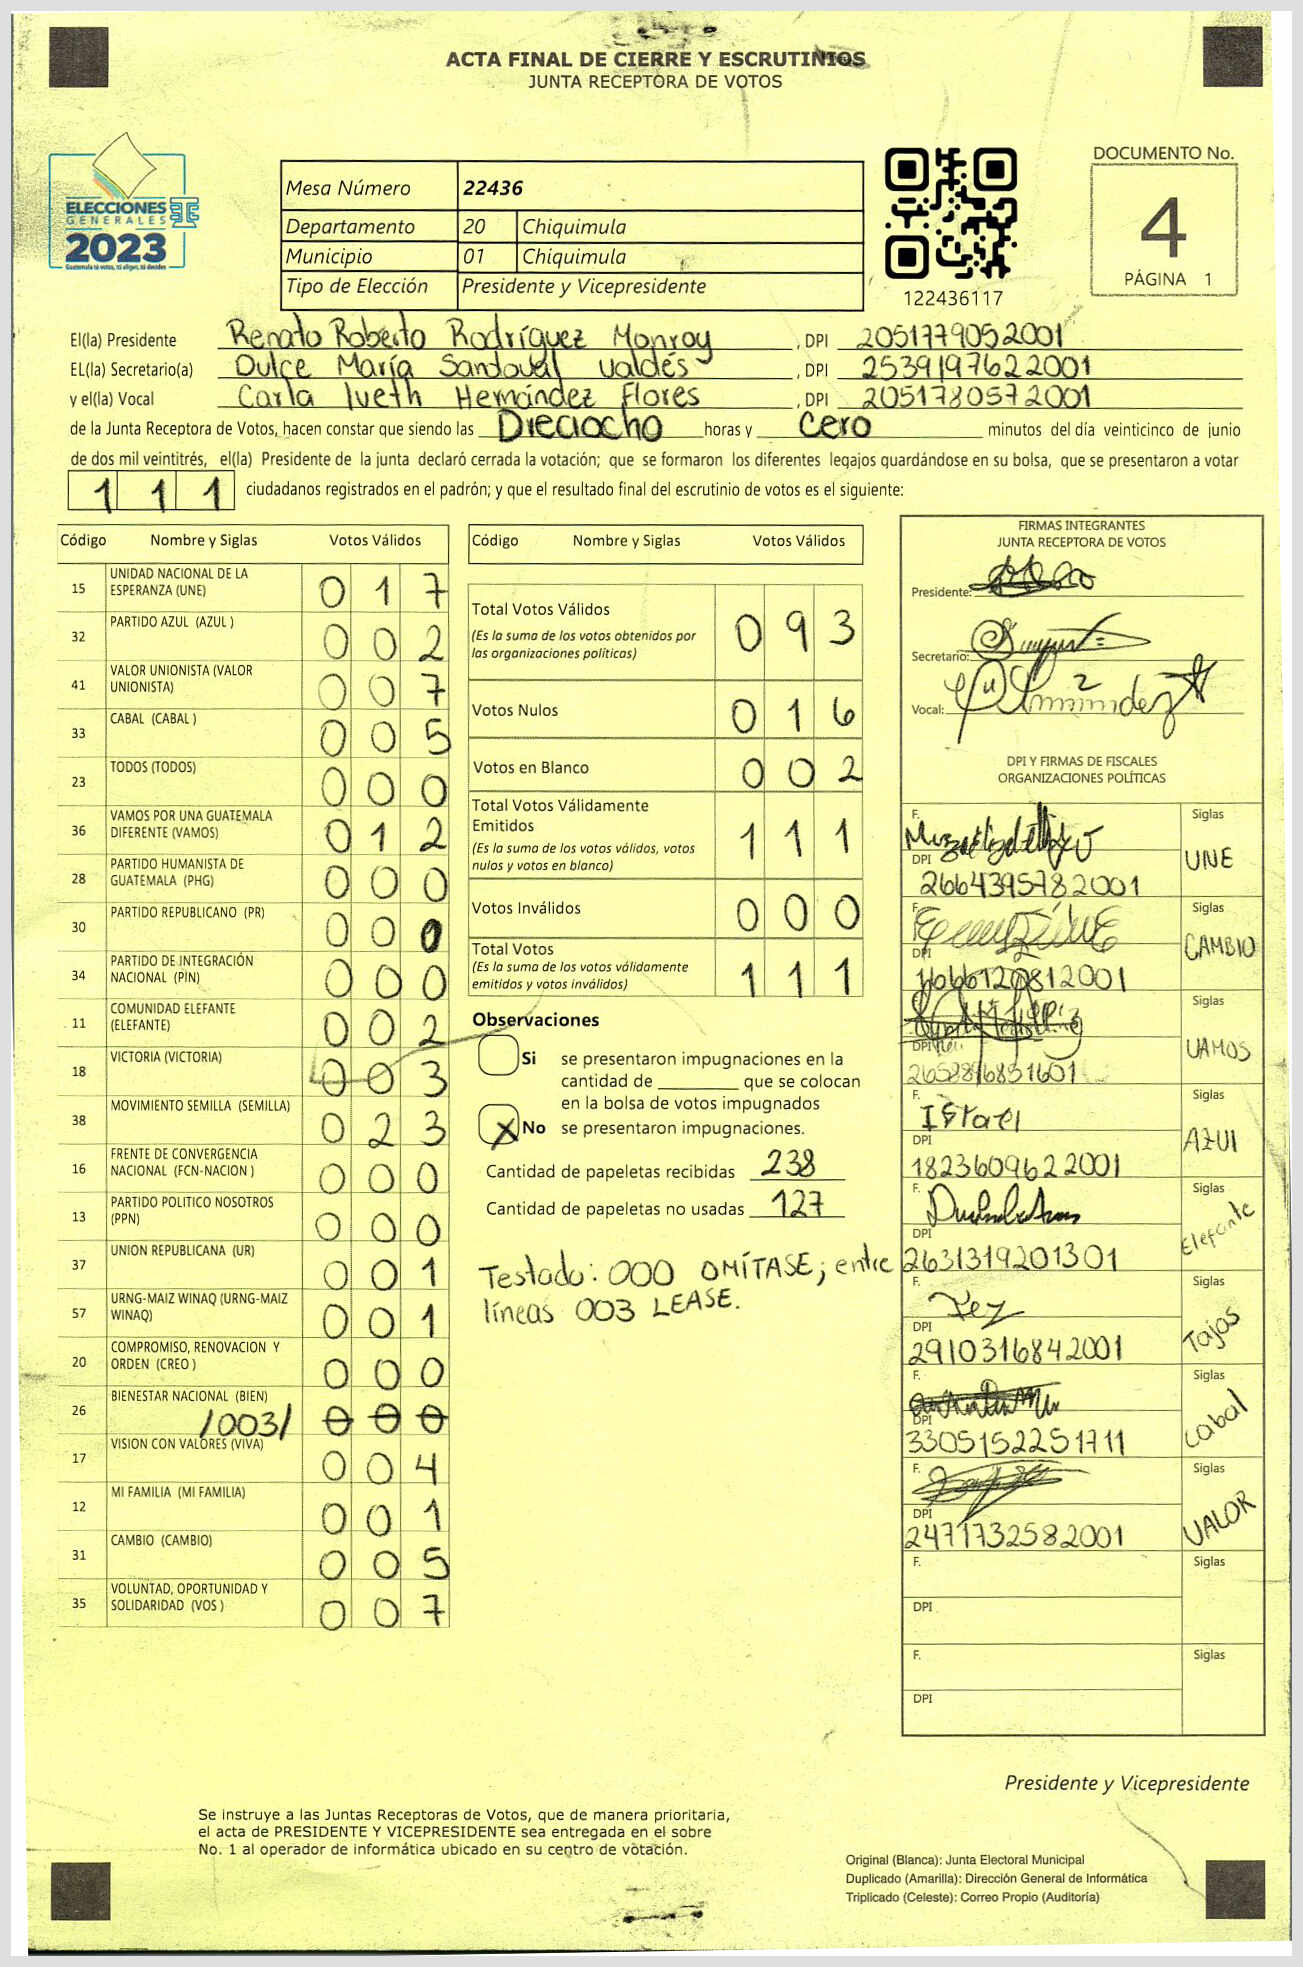 ACTA FINAL DE CIERRE Y ESCRUTINIOS
JUNTA RECEPTORA DE VOTOS
ELECCIONES
GENERALES
2023
Guatemala tú votas, tú eliges, tú decides
Mesa Número 22436
Departamento 20 Chiquimula
Municipio 01 Chiquimula
Tipo de Elección Presidente y Vicepresidente
122436117
DOCUMENTO No.
4
PÁGINA 1
El(la) Presidente Renato Roberto Rodríguez Monroy , DPI 2051779052001
EL(la) Secretario(a) Dulce María Sandoval Valdés , DPI 2539197622001
y el(la) Vocal Carla Iveth Hernández Flores , DPI 2051780572001
de la Junta Receptora de Votos, hacen constar que siendo las Dieciocho horas y Cero minutos del día veinticinco de junio
de dos mil veintitrés, el(la) Presidente de la junta declaró cerrada la votación; que se formaron los diferentes legajos guardándose en su bolsa, que se presentaron a votar
111 ciudadanos registrados en el padrón; y que el resultado final del escrutinio de votos es el siguiente:
Código Nombre y Siglas Votos Válidos
15 UNIDAD NACIONAL DE LA ESPERANZA (UNE) 017
32 PARTIDO AZUL (AZUL ) 002
41 VALOR UNIONISTA (VALOR UNIONISTA) 007
33 CABAL (CABAL ) 005
23 TODOS (TODOS) 000
36 VAMOS POR UNA GUATEMALA DIFERENTE (VAMOS) 012
28 PARTIDO HUMANISTA DE GUATEMALA (PHG) 000
30 PARTIDO REPUBLICANO (PR) 000
34 PARTIDO DE INTEGRACIÓN NACIONAL (PIN) 000
11 COMUNIDAD ELEFANTE (ELEFANTE) 002
18 VICTORIA (VICTORIA) 003
38 MOVIMIENTO SEMILLA (SEMILLA) 023
16 FRENTE DE CONVERGENCIA NACIONAL (FCN-NACION ) 000
13 PARTIDO POLITICO NOSOTROS (PPN) 000
37 UNION REPUBLICANA (UR) 001
57 URNG-MAIZ WINAQ (URNG-MAIZ WINAQ) 001
20 COMPROMISO, RENOVACION Y ORDEN (CREO ) 000
26 BIENESTAR NACIONAL (BIEN) /003/ 000
17 VISION CON VALORES (VIVA) 004
12 MI FAMILIA (MI FAMILIA) 001
31 CAMBIO (CAMBIO) 005
35 VOLUNTAD, OPORTUNIDAD Y SOLIDARIDAD (VOS ) 007
Código Nombre y Siglas Votos Válidos
Total Votos Válidos 093
(Es la suma de los votos obtenidos por
las organizaciones políticas)
Votos Nulos 016
Votos en Blanco 002
Total Votos Válidamente
Emitidos 111
(Es la suma de los votos válidos, votos
nulos y votos en blanco)
Votos Inválidos 000
Total Votos 111
(Es la suma de los votos válidamente
emitidos y votos inválidos)
Observaciones
Si se presentaron impugnaciones en la
cantidad de ________ que se colocan
en la bolsa de votos impugnados
X No se presentaron impugnaciones.
Cantidad de papeletas recibidas 238
Cantidad de papeletas no usadas 127
Testado: 000 OMÍTASE; entre
líneas 003 LEASE.
FIRMAS INTEGRANTES
JUNTA RECEPTORA DE VOTOS
Presidente:
Secretario:
Vocal:
DPI Y FIRMAS DE FISCALES
ORGANIZACIONES POLÍTICAS
F. Siglas
UNE
DPI
2664395782001
F. Siglas
CAMBIO
DPI
F. Siglas
VAMOS
DPI
F. Siglas
AZUl
DPI
1823609622001
F. Siglas
Elefante
DPI
2631319201301
F. Siglas
DPI
2910316842001
F. Siglas
Cabal
DPI
3305152251711
F. Siglas
VALOR
DPI
2471732582001
F. Siglas
DPI
F. Siglas
DPI
Presidente y Vicepresidente
Se instruye a las Juntas Receptoras de Votos, que de manera prioritaria,
el acta de PRESIDENTE Y VICEPRESIDENTE sea entregada en el sobre
No. 1 al operador de informática ubicado en su centro de votación.
Original (Blanca): Junta Electoral Municipal
Duplicado (Amarilla): Dirección General de Informática
Triplicado (Celeste): Correo Propio (Auditoría)